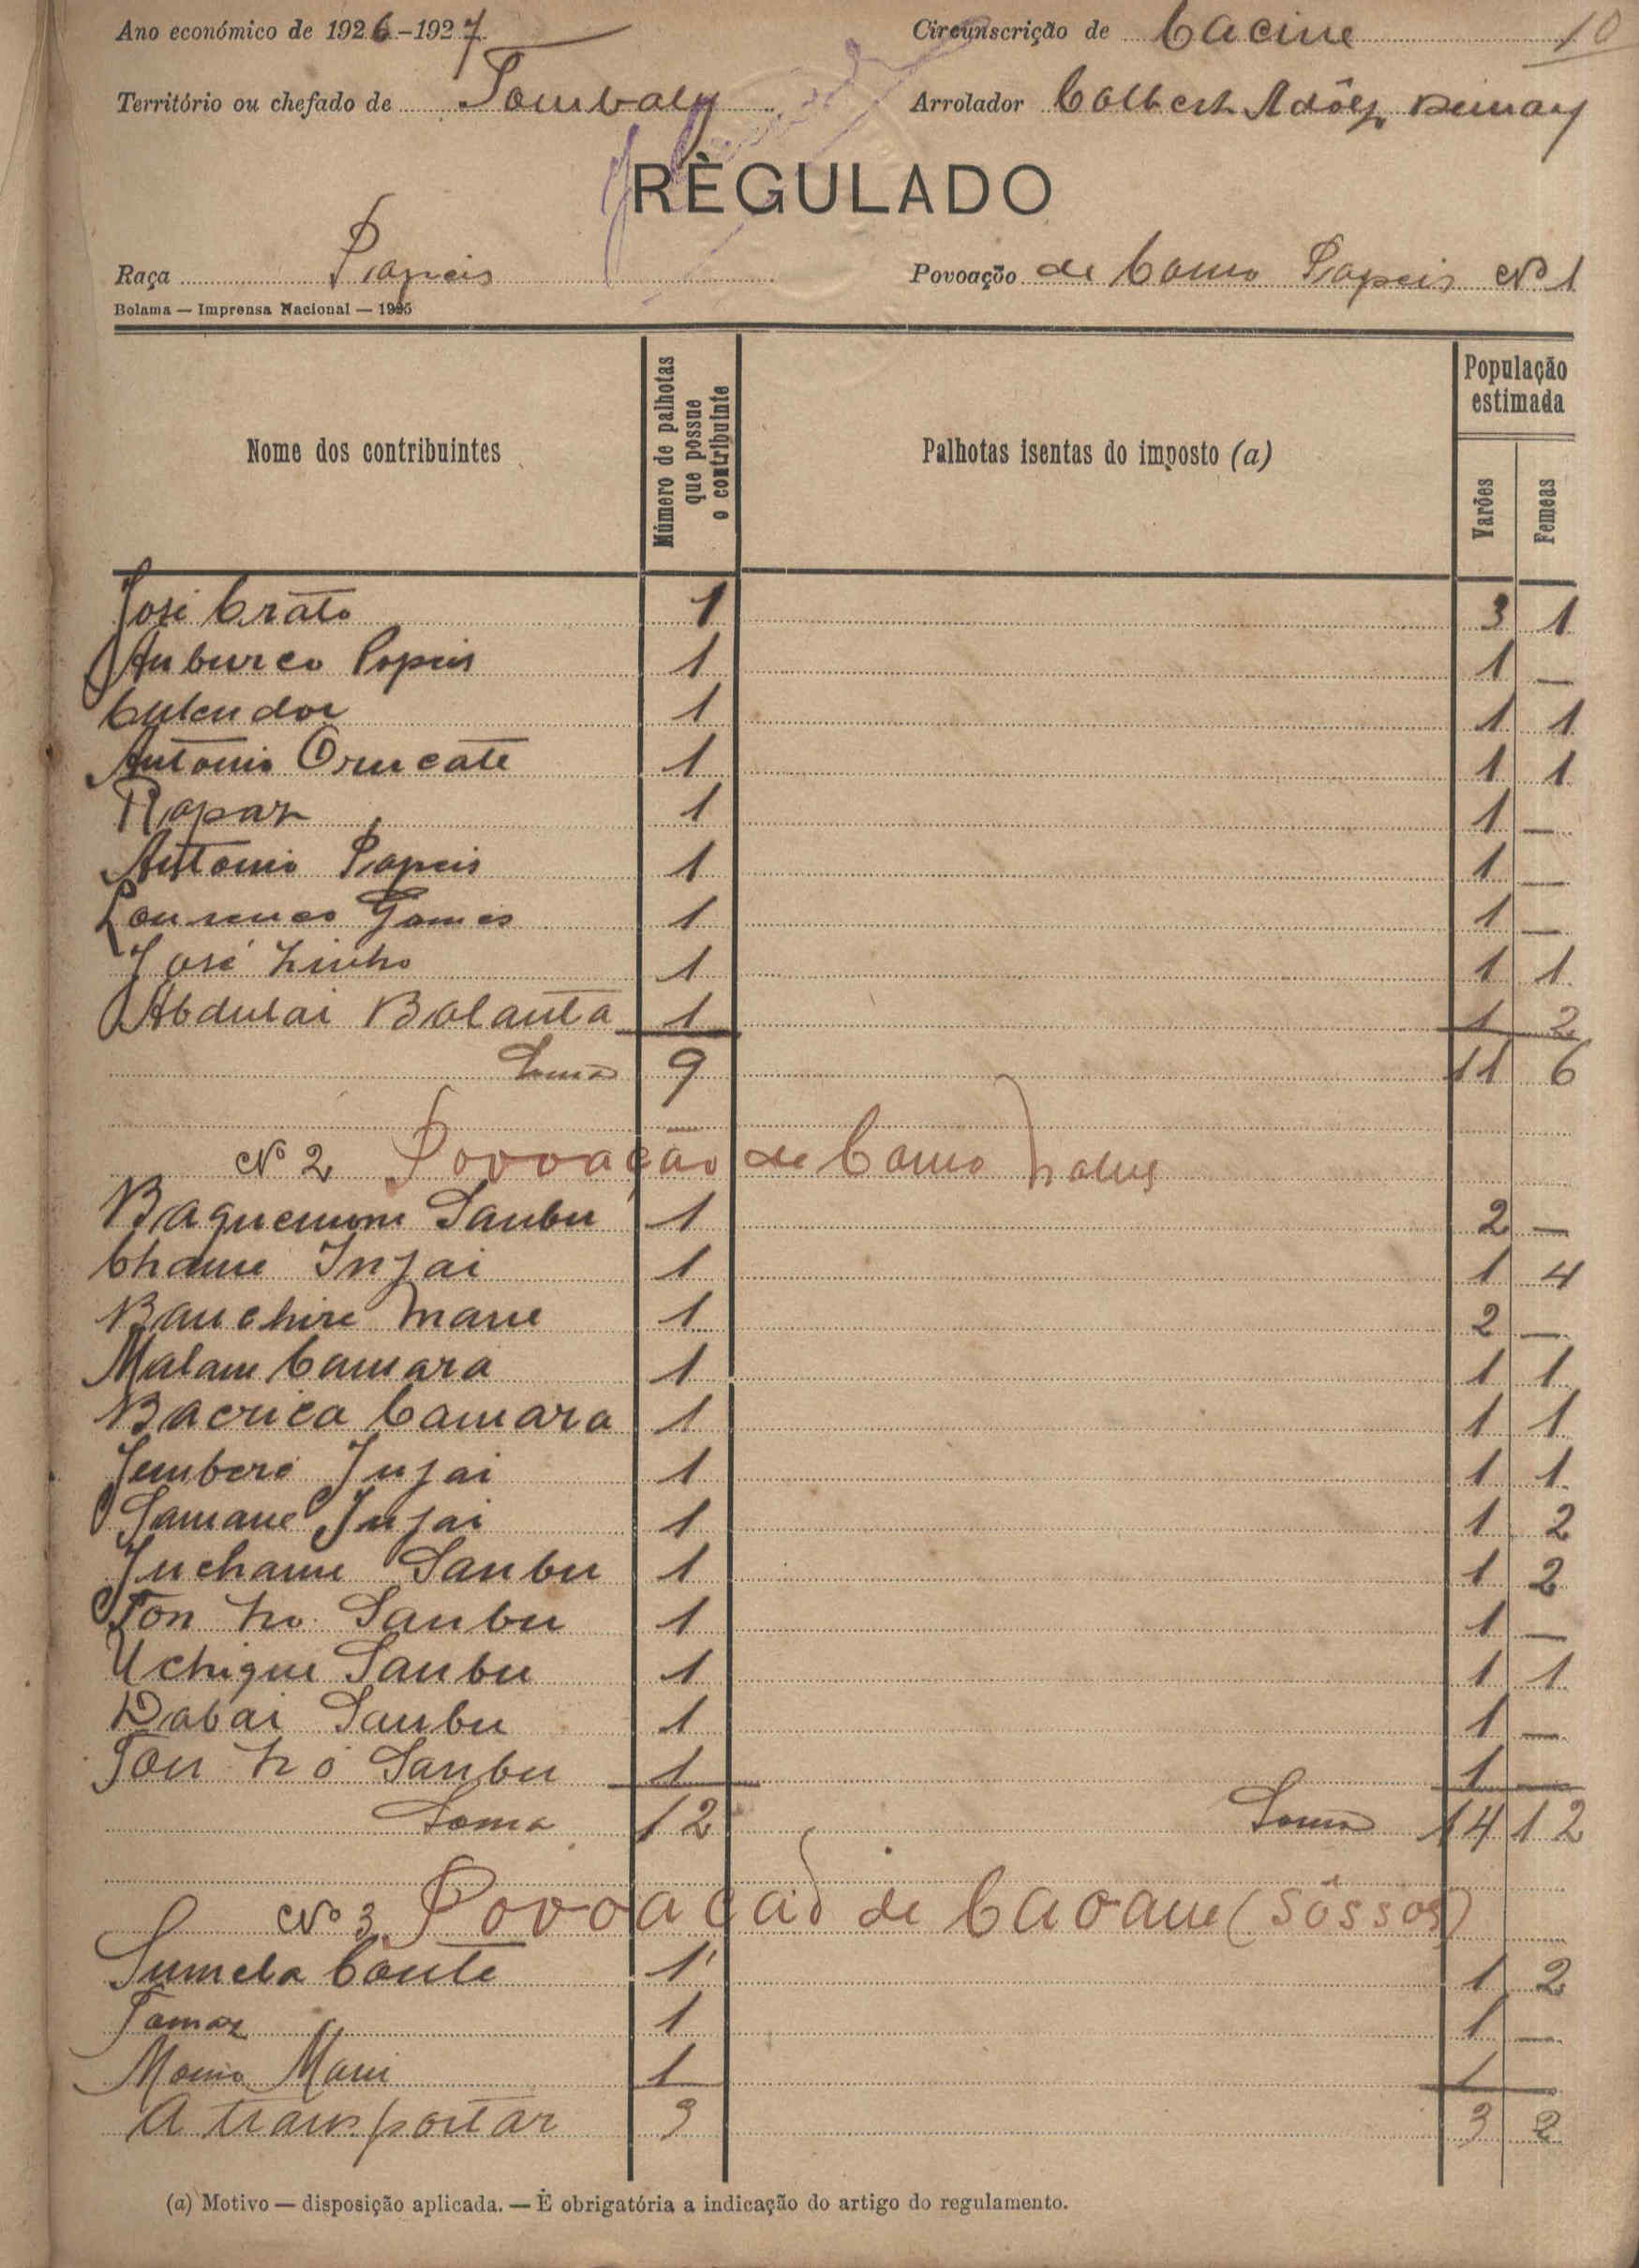 Ano económico de 1926-1927 Circunscrição de Cacine 10
Território ou chefado de Tombaly Arrolador Colbert
RÈGULADO
Raça Papeis Povoação de Como Papeis Nº 1
Bolama — Imprensa Nacional — 1925
Nome dos contribuintes
Número de palhotas que possue o contribuinte
Palhotas isentas do imposto (a)
População estimada
Varões
Femeas
José Crato 1 3 1
Papeis 1 1 —
1 1 1
Antonio 1 1 1
Rapaz 1 1 —
Antonio Papeis 1 1 —
Lourenço Gomes 1 1 —
José Zinho 1 1 1
Abdulai Balanta 1 1 2
Soma 9 11 6
Nº 2 Povoação de Como Nalus
Sanbu 1 2 —
Injai 1 1 4
Mane 1 2 —
Malam Camara 1 1 1
Camara 1 1 1
Jembere Injai 1 1 1
Injai 1 1 2
Sanbu 1 1 2
Sanbu 1 1 —
Sanbu 1 1 1
Dabai Sanbu 1 1 —
Sanbu 1 1 —
Soma 12 Soma 14 12
Nº 3 Povoação de (Sôssos)
Conte 1 1 2
Tomaz 1 1 —
1 1 —
A transportar 3 3 2
(a) Motivo — disposição aplicada. — É obrigatória a indicação do artigo do regulamento.